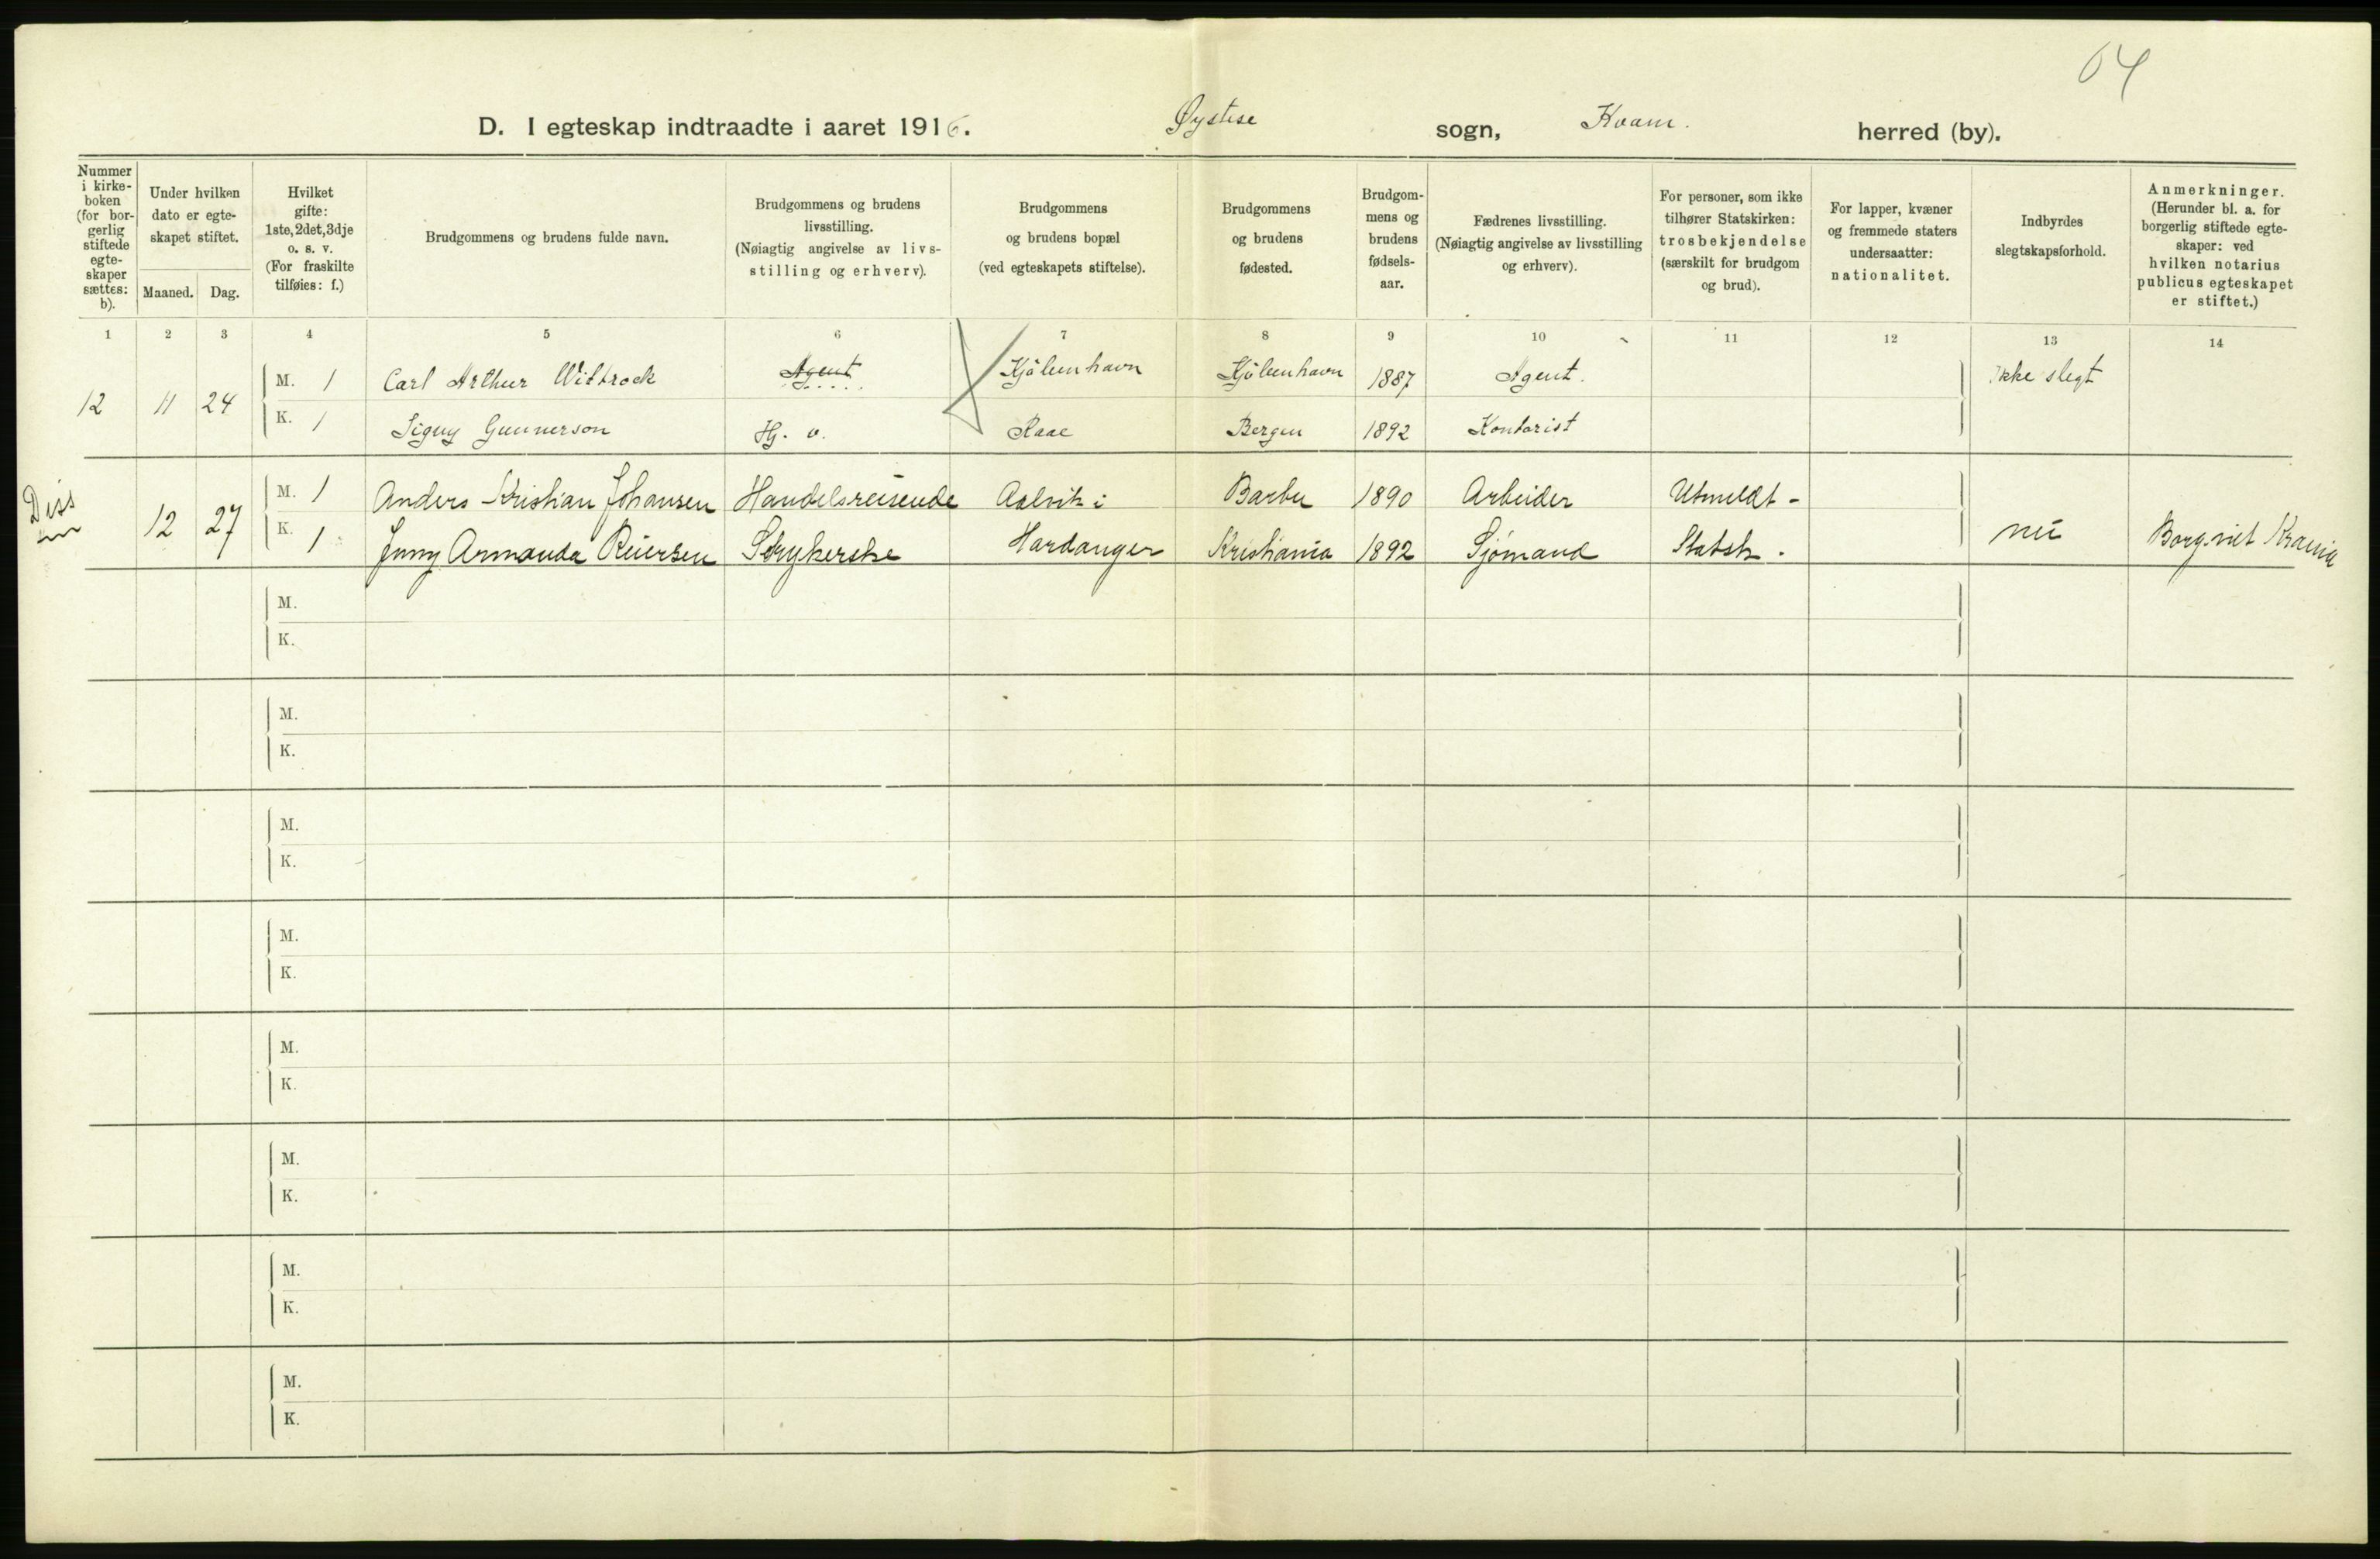 64
D. I egteskap indtraadte i aaret 1916. Øystese sogn, Kvam. herred (by).
Nummer i kirke-boken (for bor-gerlig stiftede egte-skaper sættes: b).
Under hvilken dato er egte-skapet stiftet.
Maaned. Dag.
Hvilket gifte: 1ste, 2det, 3dje o. s. v. (For fraskilte tilføies: f.)
Brudgommens og brudens fulde navn.
Brudgommens og brudens livsstilling. (Nøiagtig angivelse av livs-stilling og erhverv).
Brudgommens og brudens bopæl (ved egteskapets stiftelse).
Brudgommens og brudens fødested.
Brudgom-mens og brudens fødsels-aar.
Fædrenes livsstilling. (Nøiagtig angivelse av livsstilling og erhverv).
For personer, som ikke tilhører Statskirken: trosbekjendelse (særskilt for brudgom og brud).
For lapper, kvæner og fremmede staters undersaatter: nationalitet.
Indbyrdes slegtskapsforhold.
Anmerkninger. (Herunder bl. a. for borgerlig stiftede egte-skaper: ved hvilken notarius publicus egteskapet er stiftet.)
1 2 3 4 5 6 7 8 9 10 11 12 13 14
12 11 24 M. 1 Carl Arthur Wittrock Agent Kjöbenhavn Kjöbenhavn 1887 Agent. Ikke slegt
K. 1 Signy Gunnerson Hj. v. Raae Bergen 1892 Kontorist
Diss 12 27 M. 1 Anders Kristian Johansen Handelsreisende Aalvik i Barbu 1890 Arbeider Utmeldt -
K. 1 Jenny Armanda Reiersen Strykerske Hardanger Kristiania 1892 Sjömand Statsk. nei Borg. viet Krania
M.
K.
M.
K.
M.
K.
M.
K.
M.
K.
M.
K.
M.
K.
M.
K.